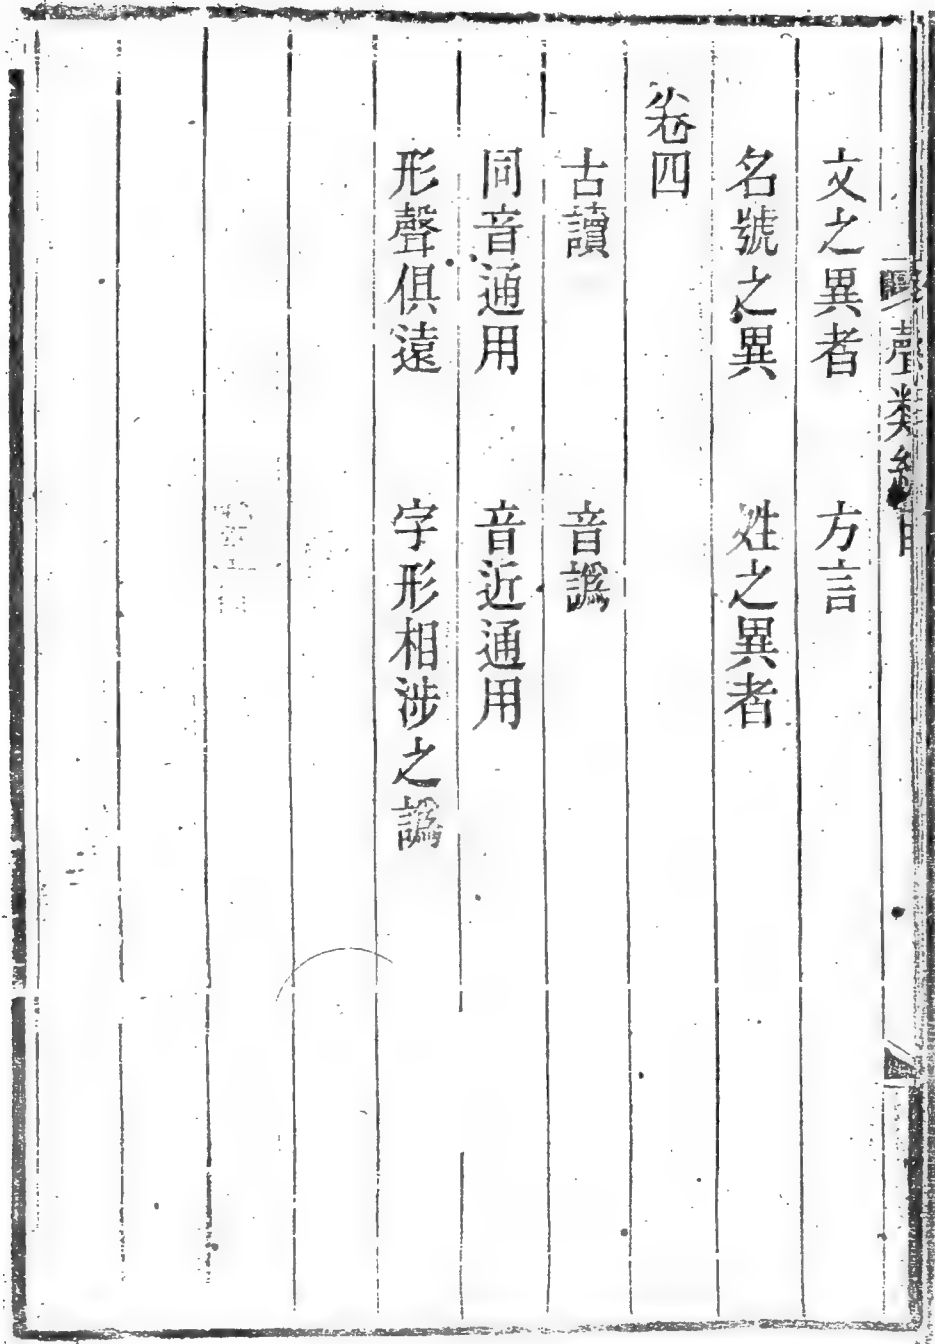 文之異者　方言
名號之異　姓之異者
卷四
古讀　音譌
同音通用　音近通用
形聲俱遠　字形相涉之譌